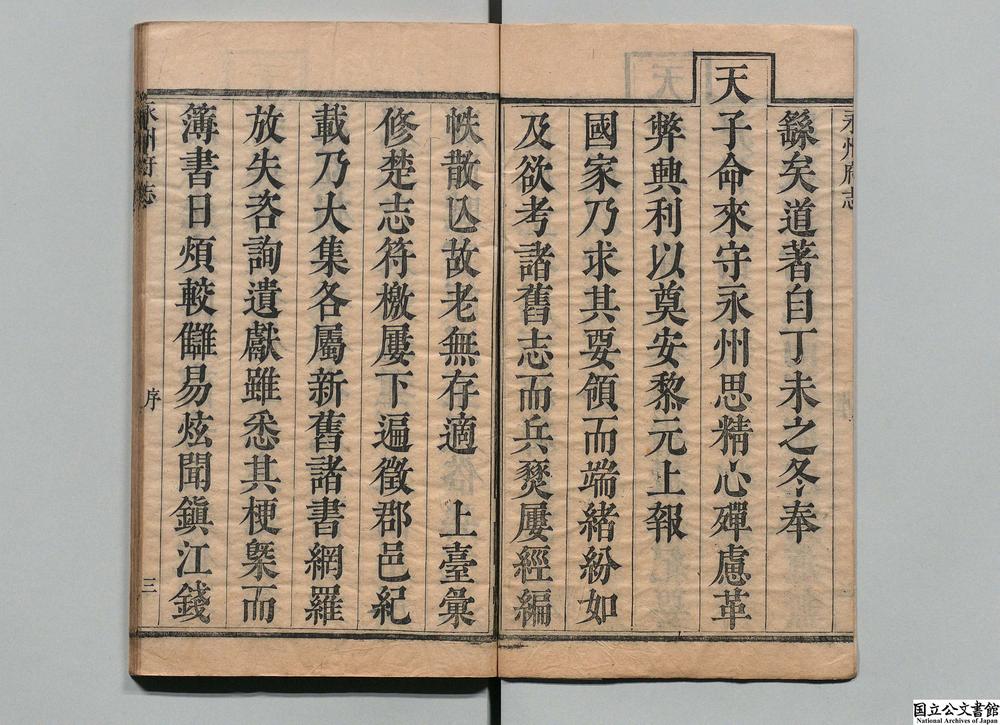 永州府志
繇矣道著自丁未之冬奉
天子命來守永州思精心殫慮革
弊興利以奠安黎元上報
國家乃求其要領而端緒紛如
及欲考諸舊志而兵燹屢經編
帙散亾故老無存適 上臺彙
修楚志符檄屢下遍徵郡邑紀
載乃大集各屬新舊諸書網羅
放失咨詢遺獻雖悉其梗槩而
簿書日煩較讎易炫聞鎮江錢
永州府志 序 三
国立公文書館
National Archives of Japan